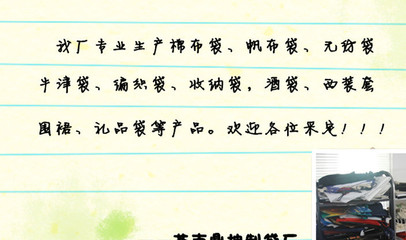 我厂专业生产棉布袋、帆布袋、无纺袋
半津袋、编织袋、收纳袋,酒袋、西装套
围裙、礼品袋等产品。欢迎各位来宅!!!